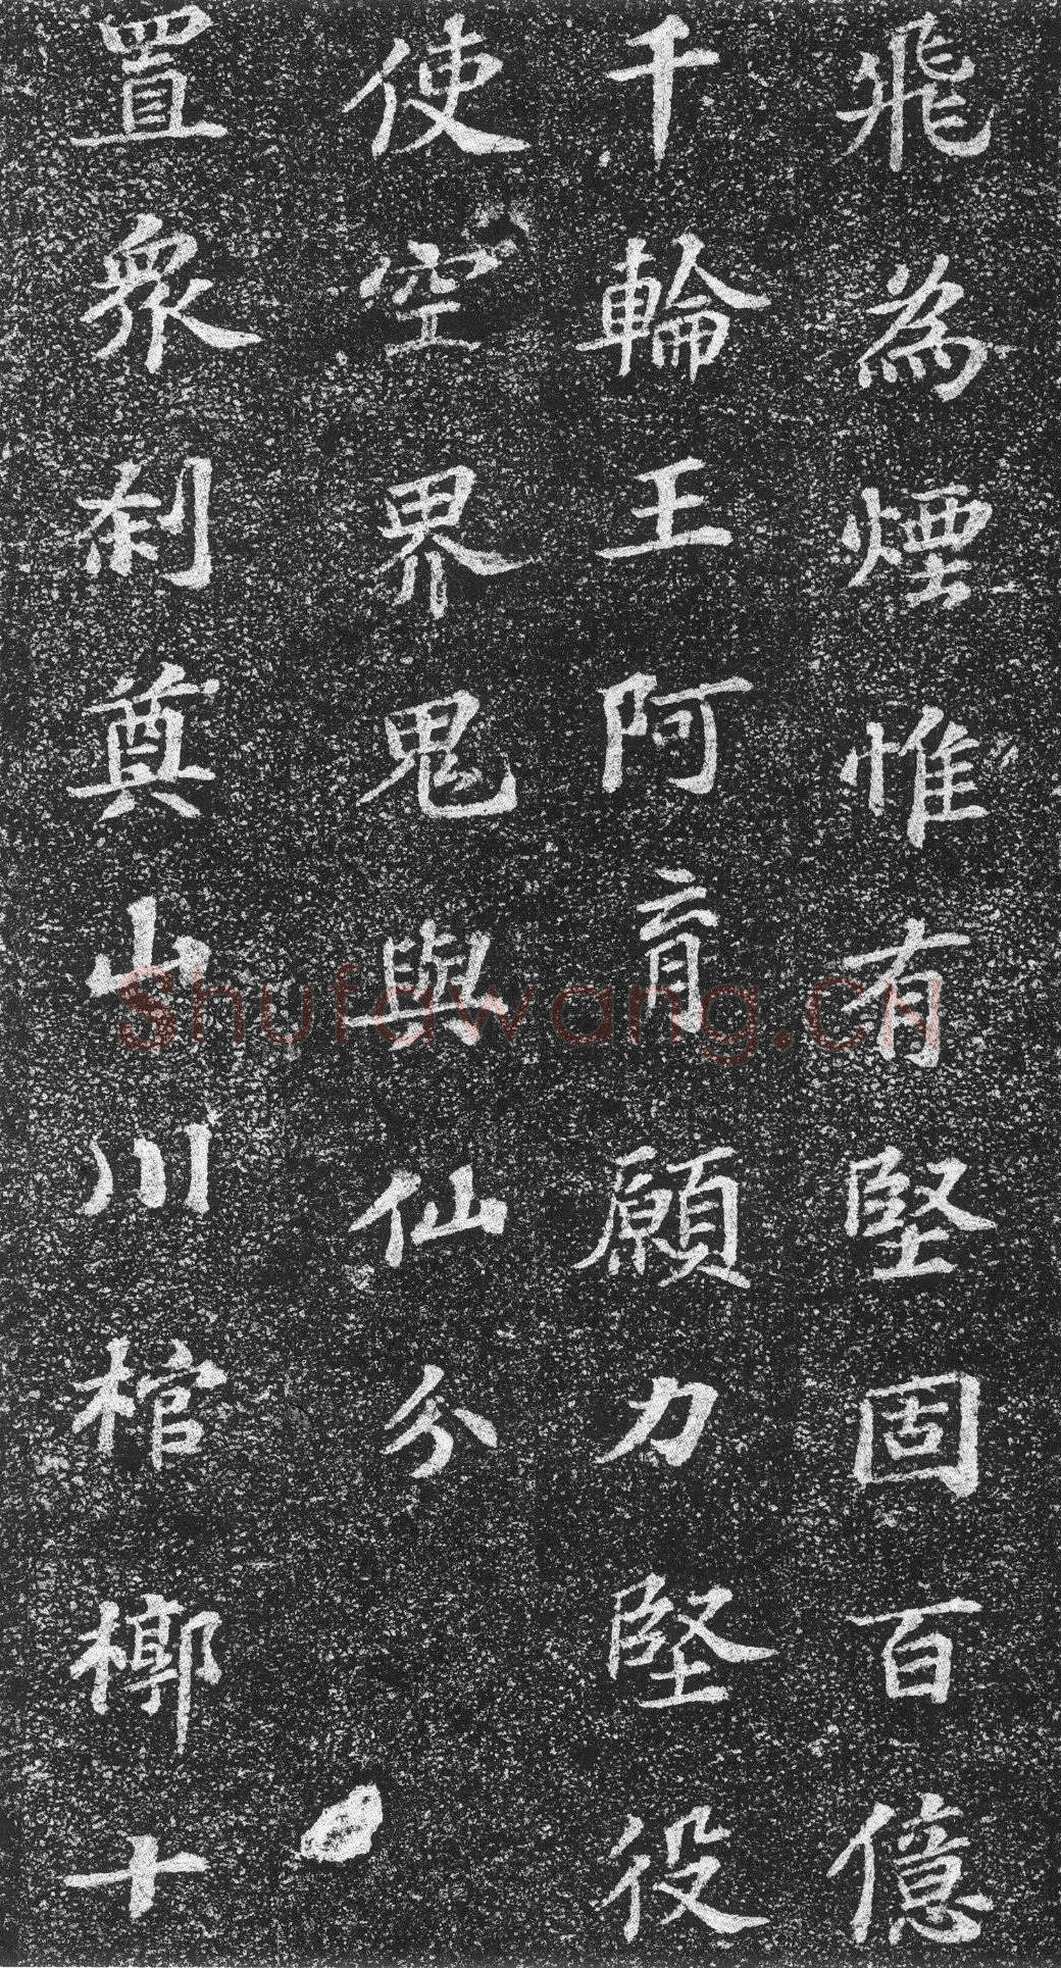 飛為煙惟有堅固百億
千輪王阿育願力堅役
使空界鬼與仙分
置眾刹奠山川棺槨十
Shufawang.CN